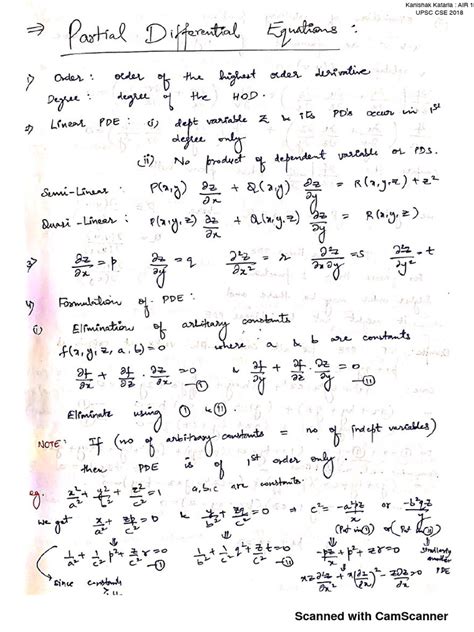 Kanishak Kataria : AIR 1
UPSC CSE 2018
⇒ Partial Differential Equations :
1) Order : order of the highest order derivative
Degree : degree of the HOD.
2) Linear PDE : (i) dept variable z & its PD's occur in 1st
degree only
(ii) No product of dependent variable or PDs.
Semi-Linear : P(x,y) ∂z/∂x + Q(x,y) ∂z/∂y = R(x,y,z) + z²
Quasi-Linear : P(x,y,z) ∂z/∂x + Q(x,y,z) ∂z/∂y = R(x,y,z)
3) ∂z/∂x = p ∂z/∂y = q ∂²z/∂x² = r ∂²z/∂x∂y = s ∂²z/∂y² = t
4) Formulation of PDE :
(i) Elimination of arbitrary constants
f(x,y,z,a,b) = 0 where : a & b are constants
∂f/∂x + ∂f/∂z · ∂z/∂x = 0 —(i) & ∂f/∂y + ∂f/∂z · ∂z/∂y = 0 —(ii)
Eliminate using (i) & (ii)
NOTE: If (no of arbitrary constants = no of indept variables)
then PDE is of 1st order only
eg. x²/a² + y²/b² + z²/c² = 1 a,b,c are constants.
we get x/a² + zp/c² = 0 & y/b² + zq/c² = 0 ⇒ c² = -a²zp/x or -b²qz/y
(Put in (i)) or (Put in (ii))
1/a² + 1/c² p² + z/c² r = 0 1/b² + 1/c² q² + z/c² t = 0 -pz/x + p² + zr = 0 similarly another PDE
since constants xz ∂²z/∂x² + x(∂z/∂x)² - z∂z/∂x = 0
Scanned with CamScanner